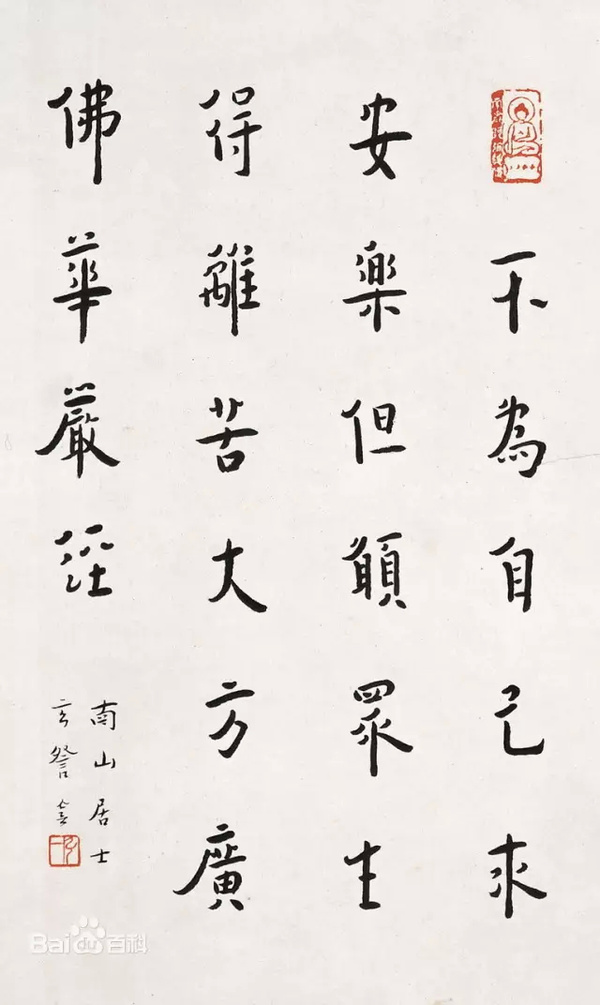 不為自己求
安樂但願眾生
得離苦大方廣
佛華嚴經
南山居士
玄詧
Bai百科